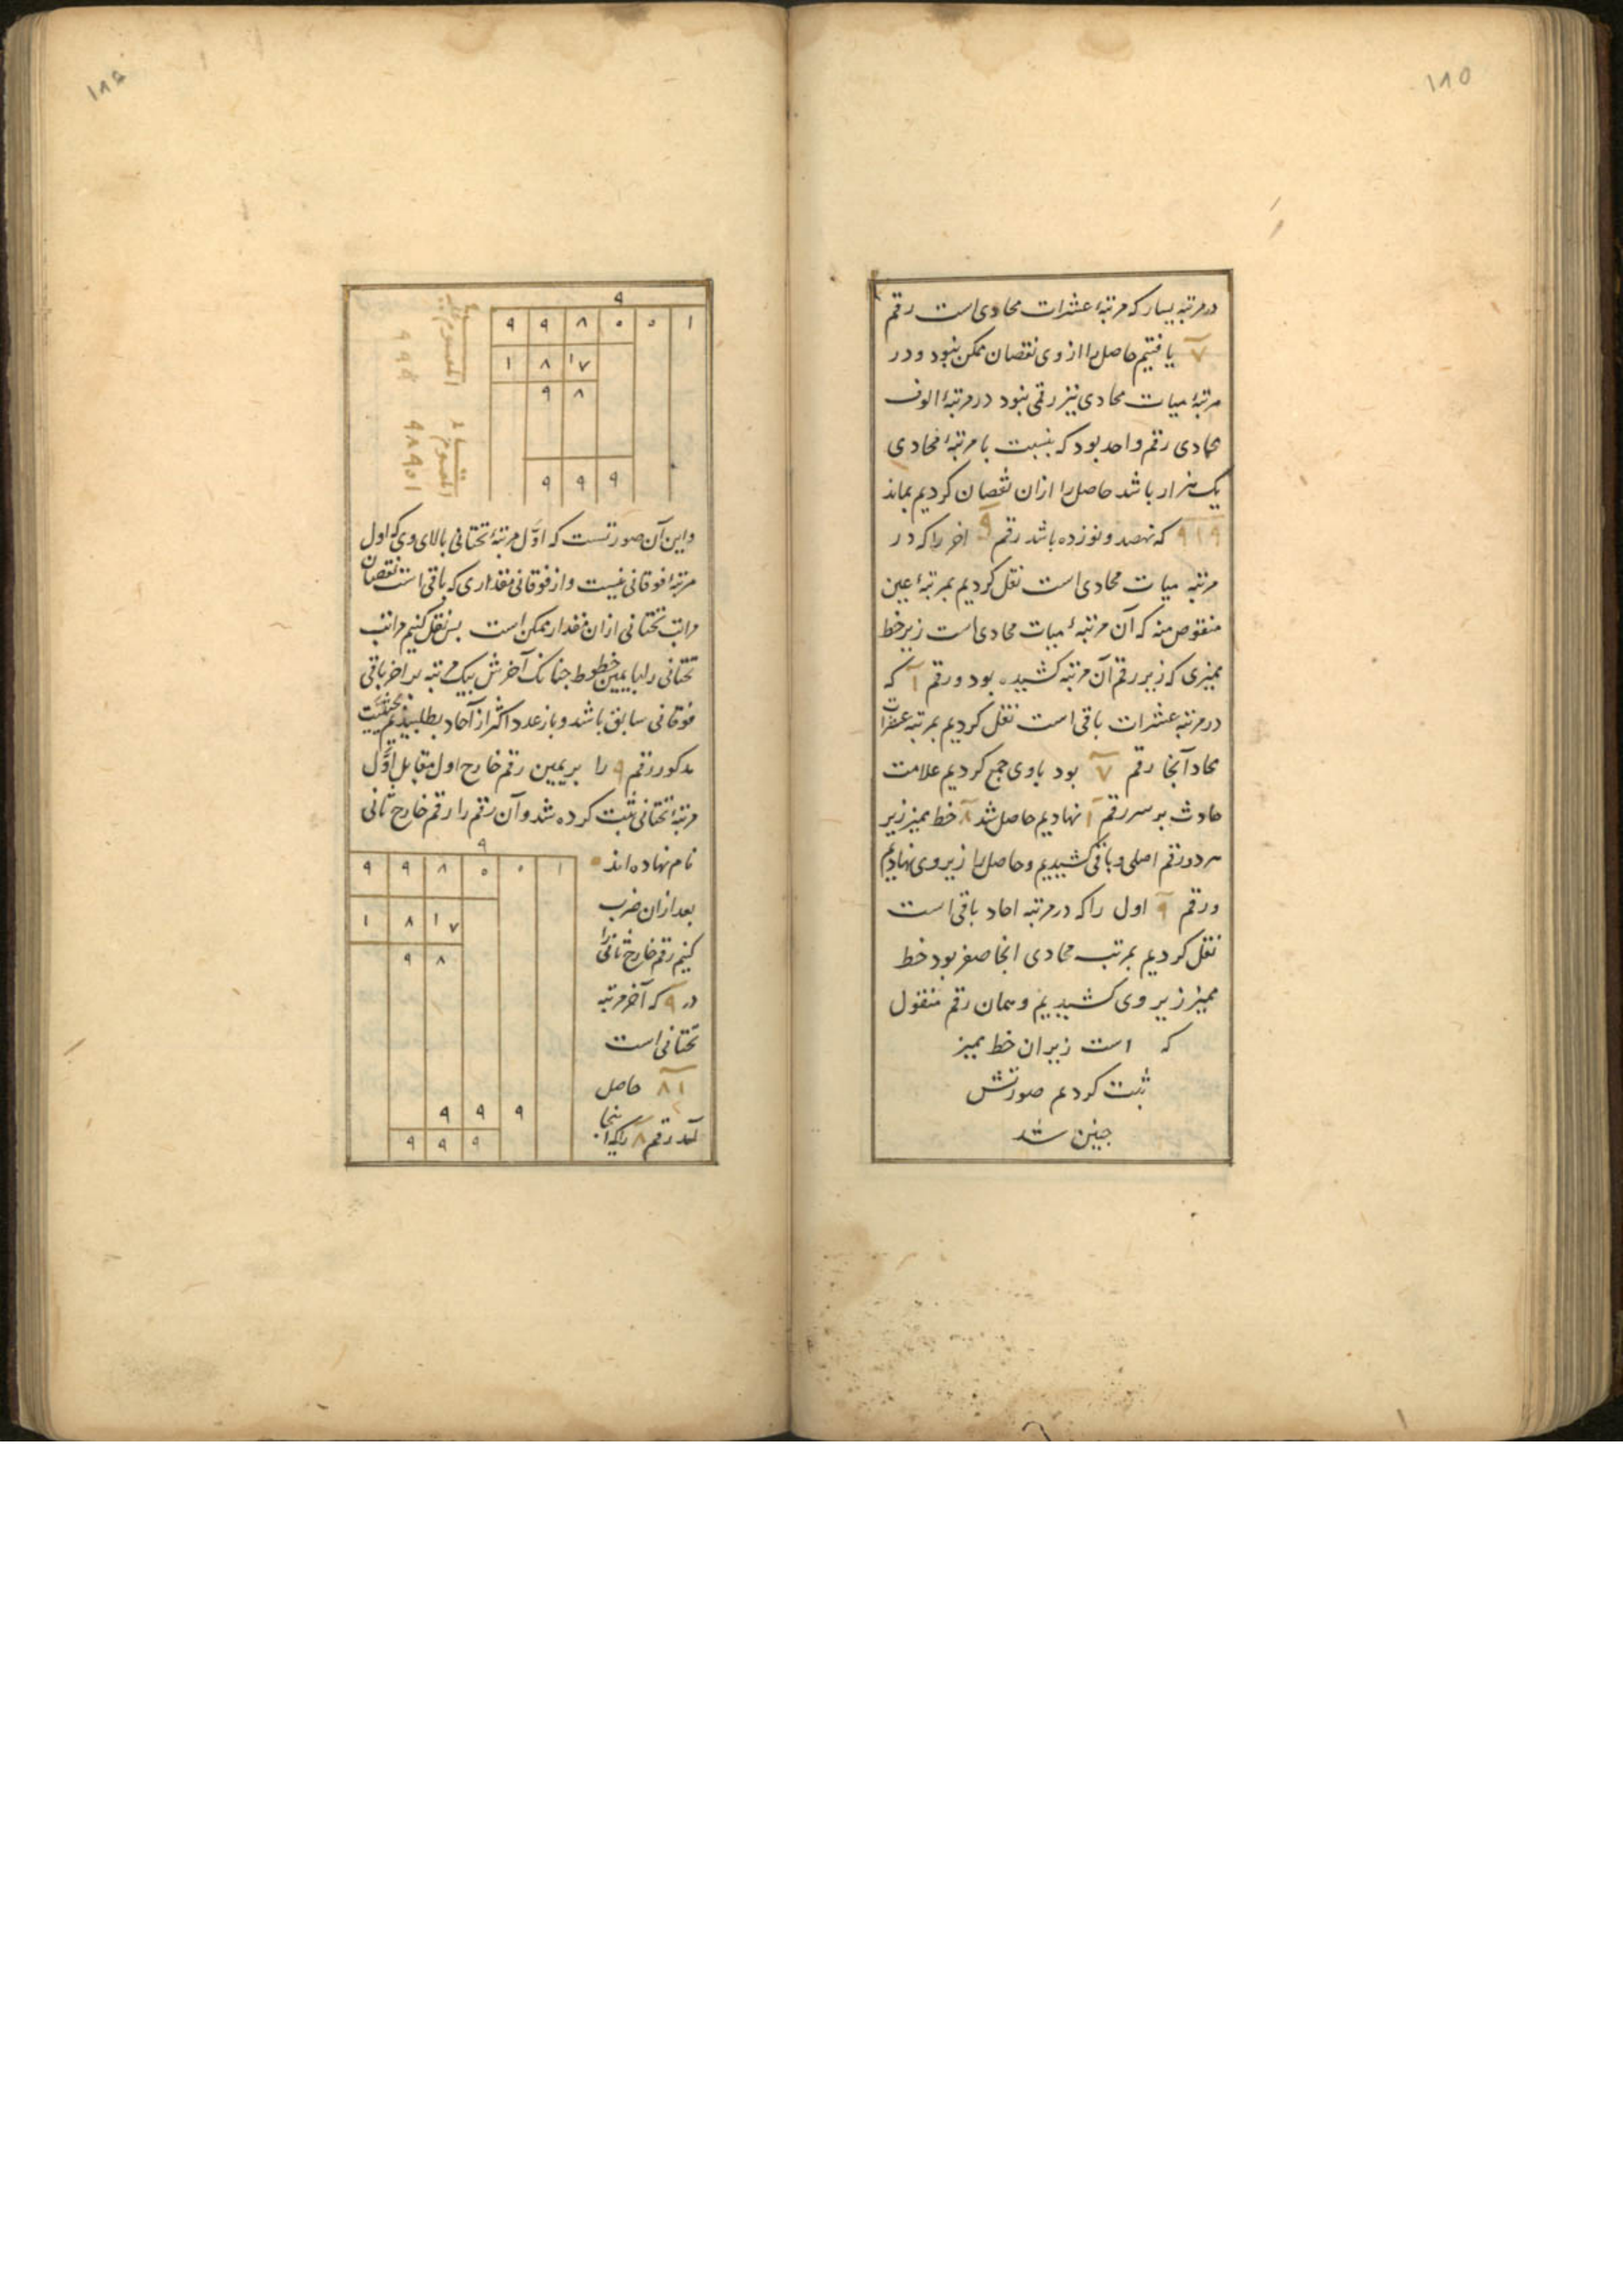 ۱۸۵
در مرتبه یسار که مرتبهٔ عشرات محادی است رقم
۷ یافتیم حاصل را از وی نقصان ممکن نبود و در
مرتبهٔ میات محادی نیز رقمی نبود در مرتبهٔ الوف
محادی رقم واحد بود که بنسبت با مرتبهٔ محادی
یک هزار باشد حاصل را ازان نقصان کردیم بماند
۹۱۹ که نهصد و نوزده باشد رقم ۹ اخر را که در
مرتبه میات محادی است نقل کردیم بمرتبهٔ عین
منقوص منه که آن مرتبهٔ میات محادی است زیر خط
ممیزی که زیر رقم آن مرتبه کشیده بود و رقم ۱ که
در مرتبه عشرات باقی است نقل کردیم بمرتبه عشرات
محاد آنجا رقم ۷ بود باوی جمع کردیم علامت
حادث بر سر رقم ۱ نهادیم حاصل شد ۸ خط ممیز زیر
هر دو رقم اصلی و باقی کشیدیم و حاصل را زیر وی نهادیم
و رقم ۹ اول را که در مرتبه احاد باقی است
نقل کردیم بمرتبه محادی انجا صفر بود خط
ممیز زیر وی کشیدیم و همان رقم منقول
که است زیر ان خط ممیز
ثبت کردیم صورتش
چنین شد
۱۸۶
۹
۹ ۹ ۸ ۵ ۵ ۱
۱ ۸ ۱۷
۹ ۸
۹ ۹ ۹
المقسوم علیه
۹ ۹ ۸
المقسوم
واین آن صورتست که اوّل مرتبهٔ تحتانی بالای وی که اول
مرتبهٔ فوقانی نیست و از فوقانی مقداری که باقی است نقصان
مراتب تحتانی ازان مقدار ممکن است بس نقل کنیم مراتب
تحتانی را بایمین خطوط جنانک آخرش بیک مرتبه بر اخر باقی
فوقانی سابق باشد و باز عدد اکثر از آحاد بطلبیدیم بحیثیت
مدکور رقم ۹ را بریمین رقم خارج اول مقابل اوّل
مرتبهٔ تحتانی ثبت کرده شد و آن رقم را رقم خارج ثانی
نام نهاده اند
بعد ازان ضرب
کنیم رقم خارج ثانی را
در ۹ که آخر مرتبه
تحتانی است
۸۱ حاصل
آمد رقم ۸ را که اینجا
۹
۹ ۹ ۸ ۵ ۰ ۱
۱ ۸ ۱۷
۹ ۸
۹ ۹ ۹
۹ ۹ ۹